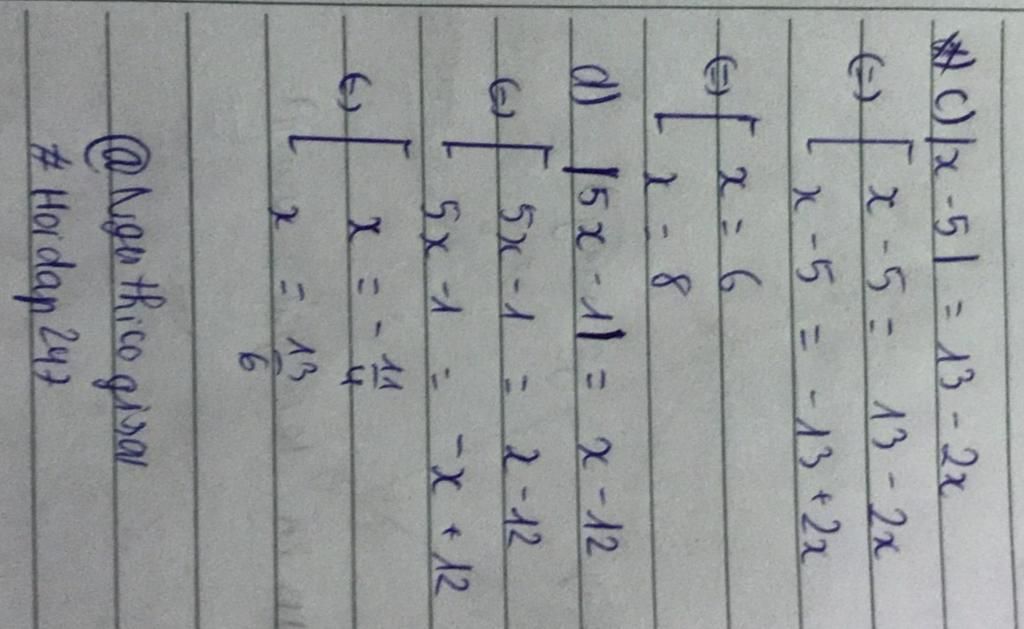 c) |x - 5| = 13 - 2x
(=) [ x - 5 = 13 - 2x
x - 5 = -13 + 2x
(=) [ x = 6
x = 8
d) |5x - 1| = x - 12
(=) [ 5x - 1 = x - 12
5x - 1 = -x + 12
(=) [ x = -11/4
x = 13/6
@Nganthicogiral
#Hoidap247